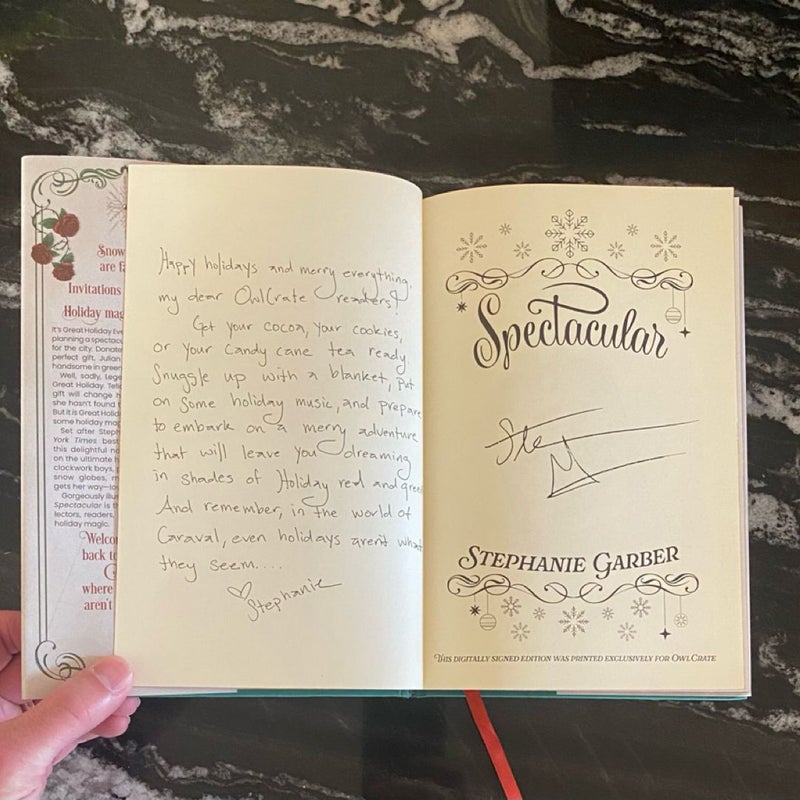 Snow
are fa
Invitations
Holiday mag
It's Great Holiday Eve
planning a spectacu
for the city. Donate
perfect gift, Julian
handsome in green
Well, sadly, Lege
Great Holiday. Tell
gift will change h
she hasn't found t
But it is Great Holid
some holiday mag
Set after Steph
York Times best
this delightful no
on the ultimate h
clockwork boys, p
snow globes, m
gets her way—lo
Gorgeously illu
Spectacular is th
lectors, readers,
holiday magic.
Welcom
back to
C
where
aren't
Happy holidays and merry everything,
my dear OwlCrate readers!
Get your cocoa, your cookies,
or your candy cane tea ready.
Snuggle up with a blanket, put
on some holiday music, and prepare
to embark on a merry adventure
that will leave you dreaming
in shades of Holiday red and green
And remember, in the world of
Caraval, even holidays aren't what
they seem....
♡ Stephanie
Spectacular
STEPHANIE GARBER
THIS DIGITALLY SIGNED EDITION WAS PRINTED EXCLUSIVELY FOR OWLCRATE